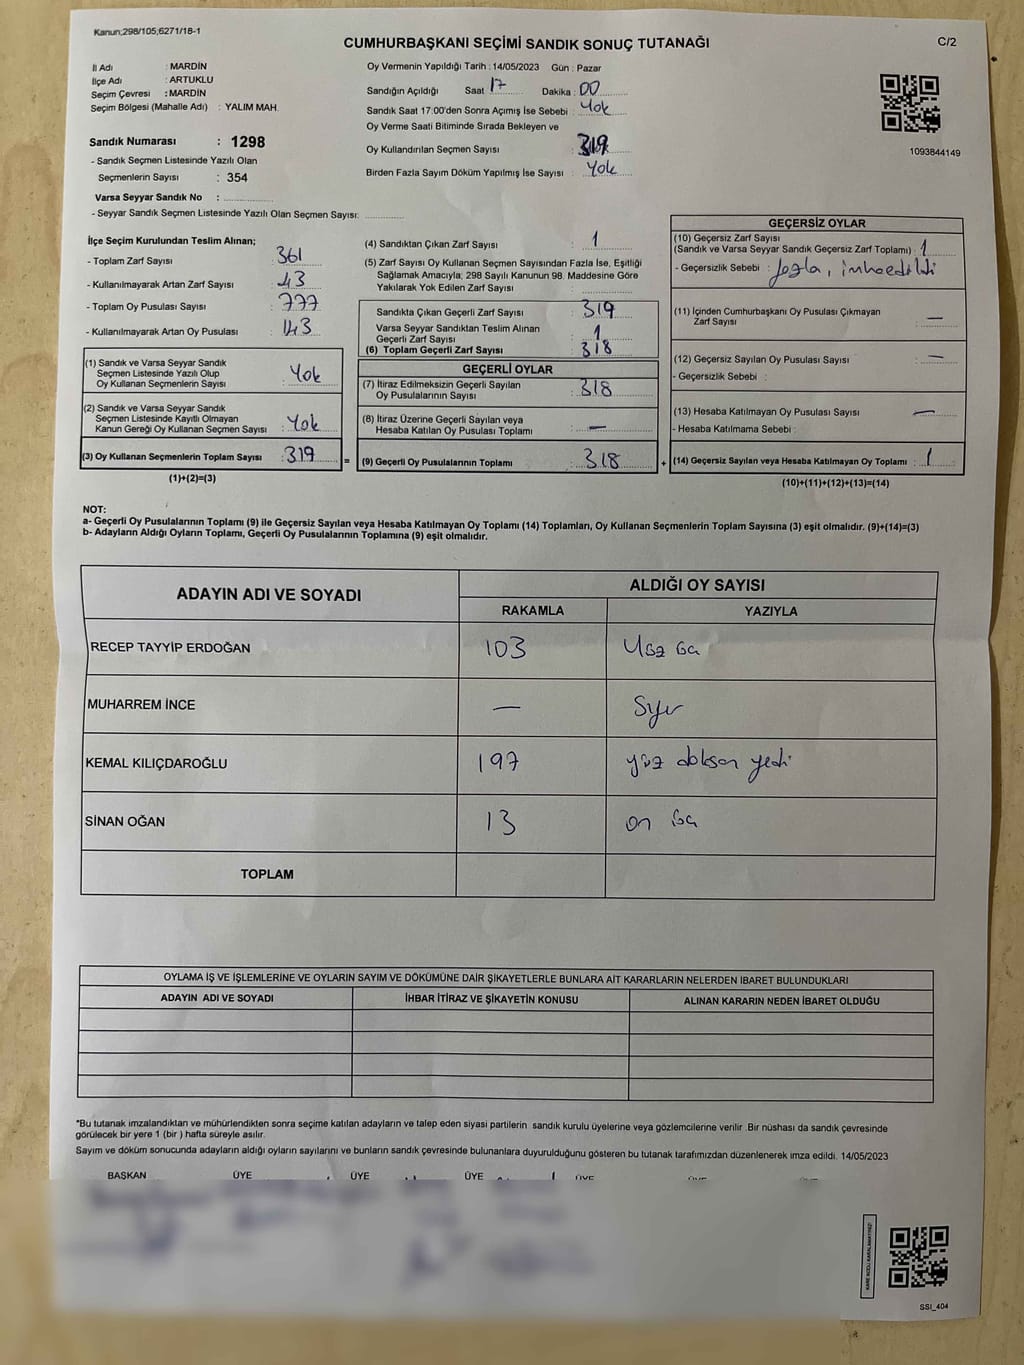 Kanun;298/105;6271/18-1
CUMHURBAŞKANI SEÇİMİ SANDIK SONUÇ TUTANAĞI
C/2
İl Adı : MARDİN
İlçe Adı : ARTUKLU
Seçim Çevresi : MARDİN
Seçim Bölgesi (Mahalle Adı) : YALIM MAH.
Sandık Numarası : 1298
- Sandık Seçmen Listesinde Yazılı Olan
Seçmenlerin Sayısı : 354
Varsa Seyyar Sandık No :
- Seyyar Sandık Seçmen Listesinde Yazılı Olan Seçmen Sayısı:
Oy Vermenin Yapıldığı Tarih : 14/05/2023 Gün : Pazar
Sandığın Açıldığı Saat 17 Dakika : 00
Sandık Saat 17:00'den Sonra Açımış İse Sebebi : Yok
Oy Verme Saati Bitiminde Sırada Bekleyen ve
Oy Kullandırılan Seçmen Sayısı : 319
Birden Fazla Sayım Döküm Yapılmış İse Sayısı : Yok
1093844149
İlçe Seçim Kurulundan Teslim Alınan;
- Toplam Zarf Sayısı : 361
- Kullanılmayarak Artan Zarf Sayısı : 43
- Toplam Oy Pusulası Sayısı : 777
- Kullanılmayarak Artan Oy Pusulası : 143
(1) Sandık ve Varsa Seyyar Sandık
Seçmen Listesinde Yazılı Olup
Oy Kullanan Seçmenlerin Sayısı : Yok
(2) Sandık ve Varsa Seyyar Sandık
Seçmen Listesinde Kayıtlı Olmayan
Kanun Gereği Oy Kullanan Seçmen Sayısı : Yok
(3) Oy Kullanan Seçmenlerin Toplam Sayısı : 319
(1)+(2)=(3)
(4) Sandıktan Çıkan Zarf Sayısı : 1
(5) Zarf Sayısı Oy Kullanan Seçmen Sayısından Fazla İse, Eşitliği
Sağlamak Amacıyla; 298 Sayılı Kanunun 98. Maddesine Göre
Yakılarak Yok Edilen Zarf Sayısı :
Sandıkta Çıkan Geçerli Zarf Sayısı : 319
Varsa Seyyar Sandıktan Teslim Alınan
Geçerli Zarf Sayısı : 1
(6) Toplam Geçerli Zarf Sayısı : 318
GEÇERLİ OYLAR
(7) İtiraz Edilmeksizin Geçerli Sayılan
Oy Pusulalarının Sayısı : 318
(8) İtiraz Üzerine Geçerli Sayılan veya
Hesaba Katılan Oy Pusulası Toplamı : —
= (9) Geçerli Oy Pusulalarının Toplamı : 318
GEÇERSİZ OYLAR
(10) Geçersiz Zarf Sayısı
(Sandık ve Varsa Seyyar Sandık Geçersiz Zarf Toplamı) : 1
- Geçersizlik Sebebi : fazla, imha edildi
(11) İçinden Cumhurbaşkanı Oy Pusulası Çıkmayan
Zarf Sayısı : —
(12) Geçersiz Sayılan Oy Pusulası Sayısı : —
- Geçersizlik Sebebi :
(13) Hesaba Katılmayan Oy Pusulası Sayısı : —
- Hesaba Katılmama Sebebi :
+ (14) Geçersiz Sayılan veya Hesaba Katılmayan Oy Toplamı : 1
(10)+(11)+(12)+(13)=(14)
NOT:
a- Geçerli Oy Pusulalarının Toplamı (9) ile Geçersiz Sayılan veya Hesaba Katılmayan Oy Toplamı (14) Toplamları, Oy Kullanan Seçmenlerin Toplam Sayısına (3) eşit olmalıdır. (9)+(14)=(3)
b- Adayların Aldığı Oyların Toplamı, Geçerli Oy Pusulalarının Toplamına (9) eşit olmalıdır.
ADAYIN ADI VE SOYADI
ALDIĞI OY SAYISI
RAKAMLA YAZIYLA
RECEP TAYYİP ERDOĞAN 103 Yüz üç
MUHARREM İNCE — Sıfır
KEMAL KILIÇDAROĞLU 197 yüz doksan yedi
SİNAN OĞAN 13 on üç
TOPLAM
OYLAMA İŞ VE İŞLEMLERİNE VE OYLARIN SAYIM VE DÖKÜMÜNE DAİR ŞİKAYETLERLE BUNLARA AİT KARARLARIN NELERDEN İBARET BULUNDUKLARI
ADAYIN ADI VE SOYADI İHBAR İTİRAZ VE ŞİKAYETİN KONUSU ALINAN KARARIN NEDEN İBARET OLDUĞU
*Bu tutanak imzalandıktan ve mühürlendikten sonra seçime katılan adayların ve talep eden siyasi partilerin sandık kurulu üyelerine veya gözlemcilerine verilir .Bir nüshası da sandık çevresinde
görülecek bir yere 1 (bir ) hafta süreyle asılır.
Sayım ve döküm sonucunda adayların aldığı oyların sayılarını ve bunların sandık çevresinde bulunanlara duyurulduğunu gösteren bu tutanak tarafımızdan düzenlenerek imza edildi. 14/05/2023
BAŞKAN ÜYE ÜYE ÜYE ÜYE
KARE KODU KARALAMAYINIZ!
SSI_404